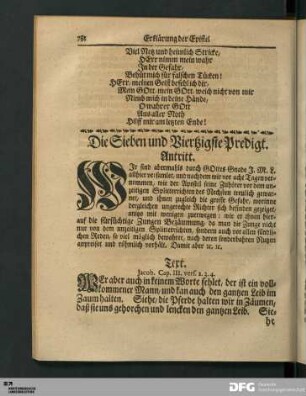 782 Erklärung der Epistel
Viel Netz und heimlich Stricke,
HErr nimm mein wahr
In der Gefahr,
Behüt mich für falschen Tücken!
HErr, meinen Geist befehl ich dir,
Mein GOtt, mein GOtt, weich nicht von mir
Nimm mich in deine Hände,
O wahrer GOtt
Aus aller Noth
Hilff mir am letzten Ende!
Die Sieben und Viertzigste Predigt.
Antritt.
WIr sind abermahls durch GOttes Gnade J. M. L.
allhier versamlet, und nachdem wir vor acht Tagen ver-
nommen, wie der Apostel seine Zuhörer vor dem un-
zeitigen Splitterrichten des Nechsten treulich gewar-
net, und ihnen zugleich die grosse Gefahr, worinne
dergleichen ungerechte Richter sich befinden gezeiget,
auf die fürsichtige Zungen Bezähmung, da man die Zunge nicht
nur von dem unzeitigen Splitterrichten, sondern auch vor allen
chen Reden, so viel möglich bewahret, nach deren sonderbahren Nutzen
anpreiset und rühmlich vorhält. Damit aber ꝛc. ꝛc.
Text.
Jacob. Cap. III. vers. 2. 3. 4.
WEr aber auch in keinem Worte fehlet, der ist ein voll-
kommener Mann, und kan auch den gantzen Leib im
Zaum halten. Siehe, die Pferde halten wir in Zäumen,
daß sie uns gehorchen und lencken den gantzen Leib. Sie-
he
DFG